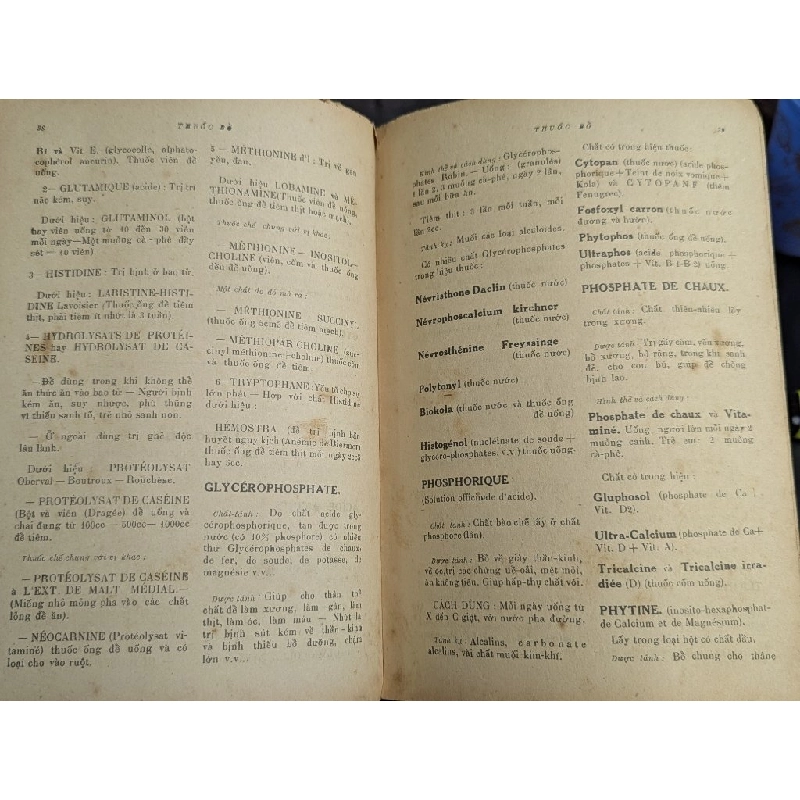 36
THUỐC BỔ
Bi và Vit E. (glycocolle, alphato-
cophérol aneurin). Thuốc viên để
uống.
2— GLUTAMIQUE (acide) : Trị trí
não kém, suy.
Dưới hiệu : GLUTAMINOL (bột
hay viên uống từ 10 đến 30 viên
mỗi ngày—Một muỗng cà-phê đầy
sét — 10 viên)
3 — HISTIDINE : Trị bịnh ở bao tử.
Dưới hiệu : LARISTINE-HISTI-
DINE Lavoisier (Thuốc ống để tiêm
thịt, phải tiêm ít nhứt là 3 tuần)
4— HYDROLYSATS DE PROTÉI-
NES hay HYDROLYSAT DE CA-
SÉINE.
— Để dùng trong khi không thể
ăn thức ăn vào bao tử — Người bịnh
kém ăn, suy nhược, phù thũng
vì thiếu sanh tố, trẻ nhỏ sanh non.
— Ở ngoài dùng trị ghẻ độc
lâu lành.
Dưới hiệu PROTÉOLYSAT
Oberval — Boutroux — Roüchèse.
— PROTÉOLYSAT DE CASÉINE
(Bột và viên (Dragée) để uống và
chai đựng từ 100cc — 500cc— 1000cc
để tiêm.
Thuốc chế chung với vị khác :
— PROTÉOLYSAT DE CASÉINE
à L'EXT. DE MALT MÉDIAL.—
(Miếng nhỏ mỏng pha vào các chất
lỏng để ăn).
— NÉOCARNINE (Protéolysat vi-
taminé) thuốc ống để uống và có
loại cho vào ruột.
5 — MÉTHIONINE d'l : Trị về gan
yếu, đau.
Dưới hiệu LOBAMINE và MÉ-
THIONAMINE (Thuốc viên để uống,
thuốc ống để tiêm thịt hoặc mạch.
Thuốc chế chung với vị khác.
MÉTHIONINE — INOSITOL-
CHOLINE (viên, cốm và thuốc ống
đều để uống).
Một chất do đó mà ra :
— MÉTHIONINE SUCCINYL
(thuốc ống beine để tiêm mạch).
— MÉTHIOPAR CHOLINE (suc-
cinyl méthionine-choline) Thuốc cốm
và thuốc ống để tiêm
6 THYPTOPHANE: Yếu tố chung
lớn phát — Hợp với chất Histidine
dưới hiệu :
HEMOSTRA (để trị bịnh bạt
huyết nguy kịch (Anémie de Biermer)
thuốc ống để tiêm thịt mỗi ngày 2cc
hay 5cc.
GLYCÉROPHOSPHATE.
Chất-tánh : Do chất acide gly-
cérophosphorique, tan được trong
nước (có 10% phosphore) có nhiều
thứ Glycérophosphates de chaux,
de fer, de soude, de potasse, de
magnésie v.v...
Dược tánh : Giúp cho thân thể
chất để làm xương, làm gân, làm
thịt, làm óc, làm máu — Nhứt là
trị bịnh sút kém về thần-kinh
và bịnh thiếu bổ dưỡng, chậm
lớn v.v...
THUỐC BỔ
Hình thể và cách dùng : Glycérophos-
phates Robin — Uống : (granulés)
1, 2, 3 muỗng cà-phê, ngày 2 lần,
sau mỗi bữa ăn.
Tiêm thịt : 3 lần mỗi tuần, mỗi
lần 5cc.
Tánh kỵ : Muối các loại alcaloïdes.
Có nhiều chất Glycérophosphates
trong hiệu thuốc :
Névristhone Daclin (thuốc nước)
Névrophoscalcium kirchner
(thuốc nước)
Nevrosthénine Freyssinge
(thuốc nước)
Polytonyl (thuốc nước)
Biokola (thuốc nước và thuốc ống
để uống)
Histogénol (nucleinate de soude +
glycero-phosphates, v.v.) thuốc uống.
PHOSPHORIQUE
(Solution officinale d'acide).
Chất tánh : Chất béo chế lấy ở chất
phosphore (lân).
Dược tánh : Bổ về giây thần-kinh,
và có trị các chứng uể-oải, mệt mỏi,
ăn không tiêu. Giúp hấp-thụ chất vôi.
CÁCH DÙNG : Mỗi ngày uống từ
X đến C giọt, với nước pha đường.
Tánh kỵ : Alcalins, carbonate
alcalins, vài chất muối kim-khí.
Chất có trong hiệu thuốc :
Cytopan (thuốc nước) (acide phos-
phorique + Teint de noix vomique +
Kola) và CYTOPANF (thêm
Fenugrec).
Fosfoxyl carron (thuốc nước
đường và nước).
Phytophos (thuốc ống để uống).
Ultraphos (acide phosphorique +
phosphates + Vit. B 1-B 2) uống.
PHOSPHATE DE CHAUX.
Chất tánh : Chất thiên-nhiên lấy
trong xương.
Dược tánh : Trị gãy cẳng, yếu xương,
bổ xương, bộ răng, trong khi sanh
đẻ, cho con bú, giúp để chống
bịnh lao.
Hình thể và cách dùng :
Phosphate de chaux và Vita-
miné. Uống, người lớn mỗi ngày 2
muỗng canh. Trẻ em : 2 muỗng
cà-phê.
Chất có trong hiệu :
Gluphosol (phosphate de Ca
Vit. D2).
Ultra-Calcium (phosphate de Ca+
Vit. D + Vit. A).
Tricalcine và Tricalcine irra-
diée (D) (thuốc cốm uống).
PHYTINE. (inosito-hexaphosphat-
de Calcium et de Magnésium).
Lấy trong loại hột có chất dầu.
Dược tánh : Bổ chung cho tháng